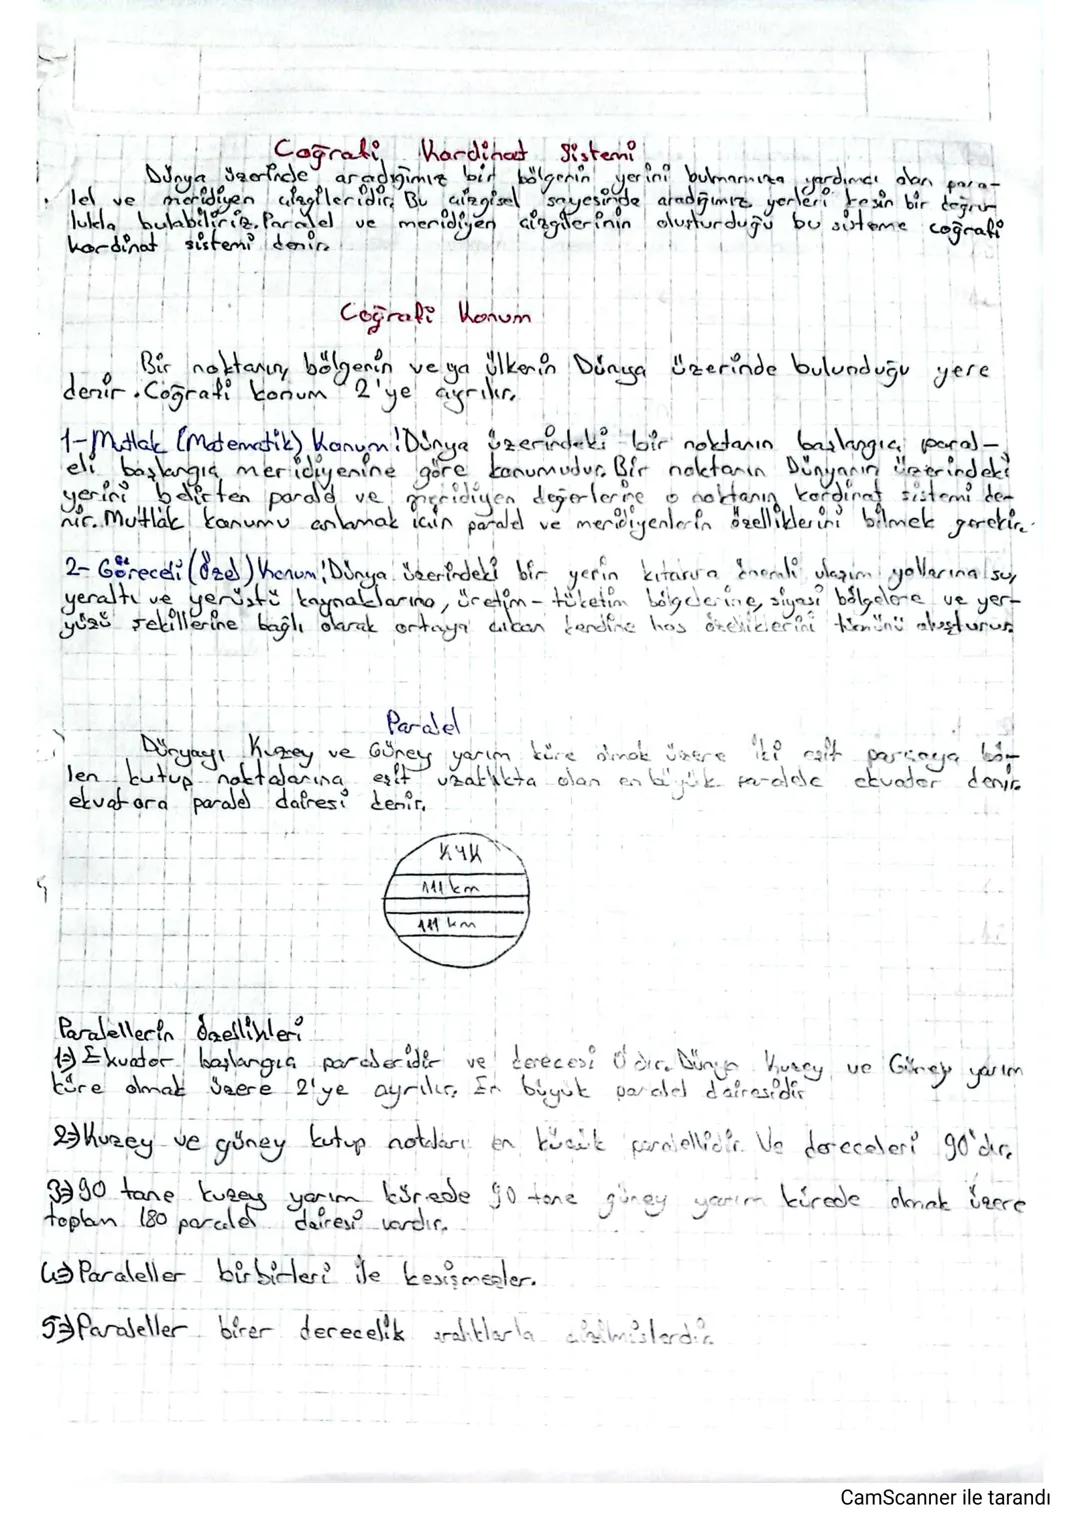 Coğrafi Kordinat Sistemi
Dünya üzerinde aradığımız bir bölgenin yerini bulmamıza yardımcı olan para-
lel ve meridiyen çizgileridir. Bu çizgisel sayesinde aradığımız yerleri kesin bir doğru-
lukla bulabiliriz. Paralel ve meridiyen çizgilerinin oluşturduğu bu sisteme coğrafi
kordinat sistemi denir.
Coğrafi Konum
Bir noktanın, bölgenin ve ya ülkenin Dünya üzerinde bulunduğu yere
denir. Coğrafi konum 2'ye ayrılır.
1-Mutlak (Matematik) Konum: Dünya üzerindeki bir noktanın başlangıç paral-
eli başlangıç meridiyenine göre konumudur. Bir noktanın Dünyanın üzerindeki
yerini belirten paralel ve meridiyen değerlerine o noktanın kordinat sistemi de-
nir. Mutlak konumu anlamak için paralel ve meridiyenlerin özelliklerini bilmek gerekir.
2- Göreceli (özel) Konum: Dünya üzerindeki bir yerin önemli ulaşım yollarına su,
yeraltı ve yerüstü kaynaklarına, üretim-tüketim bölgelerine, siyasi bölgelere ve yer-
yüzü şekillerine bağlı olarak ortaya çıkan kendine has özelliklerini tümünü oluşturur.
Paralel
Dünyayı Kuzey ve Güney yarım küre olmak üzere iki eşit parçaya bö-
len kutup noktalarına eşit uzaklıkta olan en büyük paralele ekvador denir.
ekvatora paralel dairesi denir.
KYK
111 km
111 km
Paralellerin özellikleri
1) Ekvador başlangıç paraleridir ve derecesi 0'dır. Dünya Kuzey ve Güney yarım
küre olmak üzere 2'ye ayrılır. En büyük paralel dairesidir
2) Kuzey ve güney kutup noktaları en küçük paralellidir. Ve dereceleri 90'dır.
3) 90 tane kuzey yarım kürede 90 tane güney yarım kürede olmak üzere
toplam 180 paralel dairesi vardır.
4) Paraleller birbirleri ile kesişmezler.
5) Paraleller birer derecelik aralıklarla çizilmişlerdir.
CamScanner ile tarandı